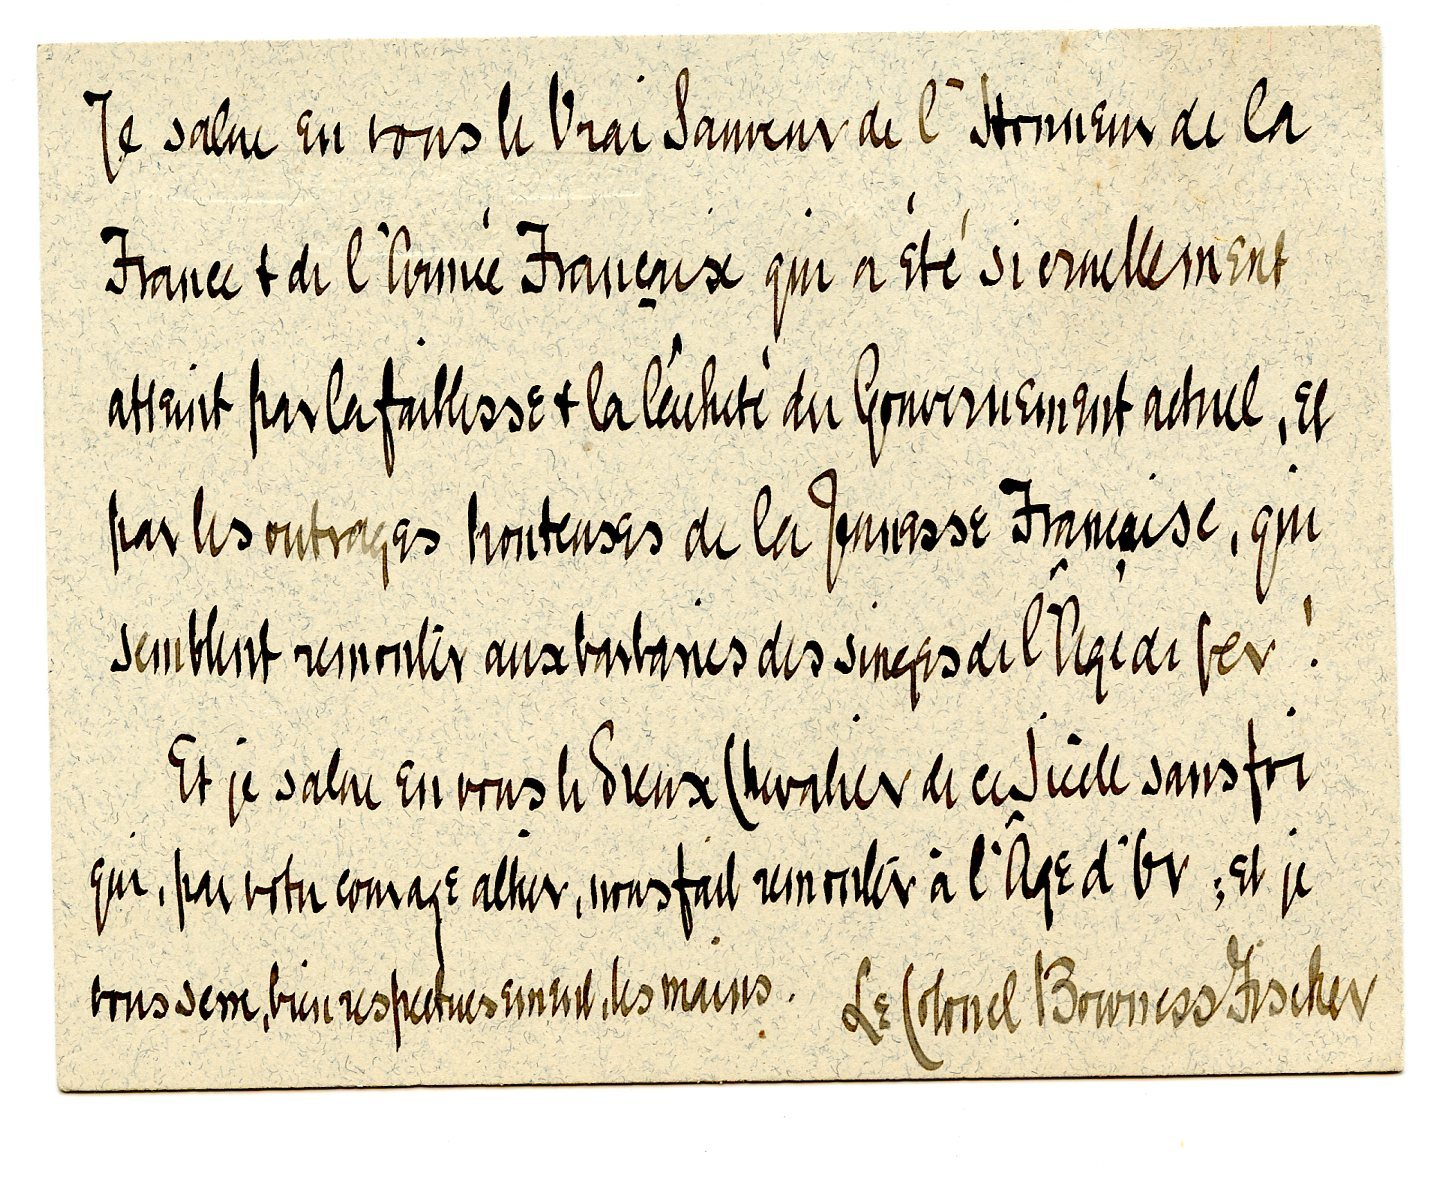 Je salue en vous le Vrai Sauveur de l'Honneur de la
France & de l'Armée Française qui a été si cruellement
atteint par la faiblesse & la lâcheté du Gouvernement actuel, et
par les outrages honteuses de la Jeunesse Française, qui
semblent remonter aux barbaries des singes de l'Age de fer !
Et je salue en vous le Preux Chevalier de ce Siècle sans foi
qui, par votre courage altier, nous fait remonter à l'Âge d'Or ; et je
vous serre, bien respectueusement, les mains. Le Colonel Bowness Fischer